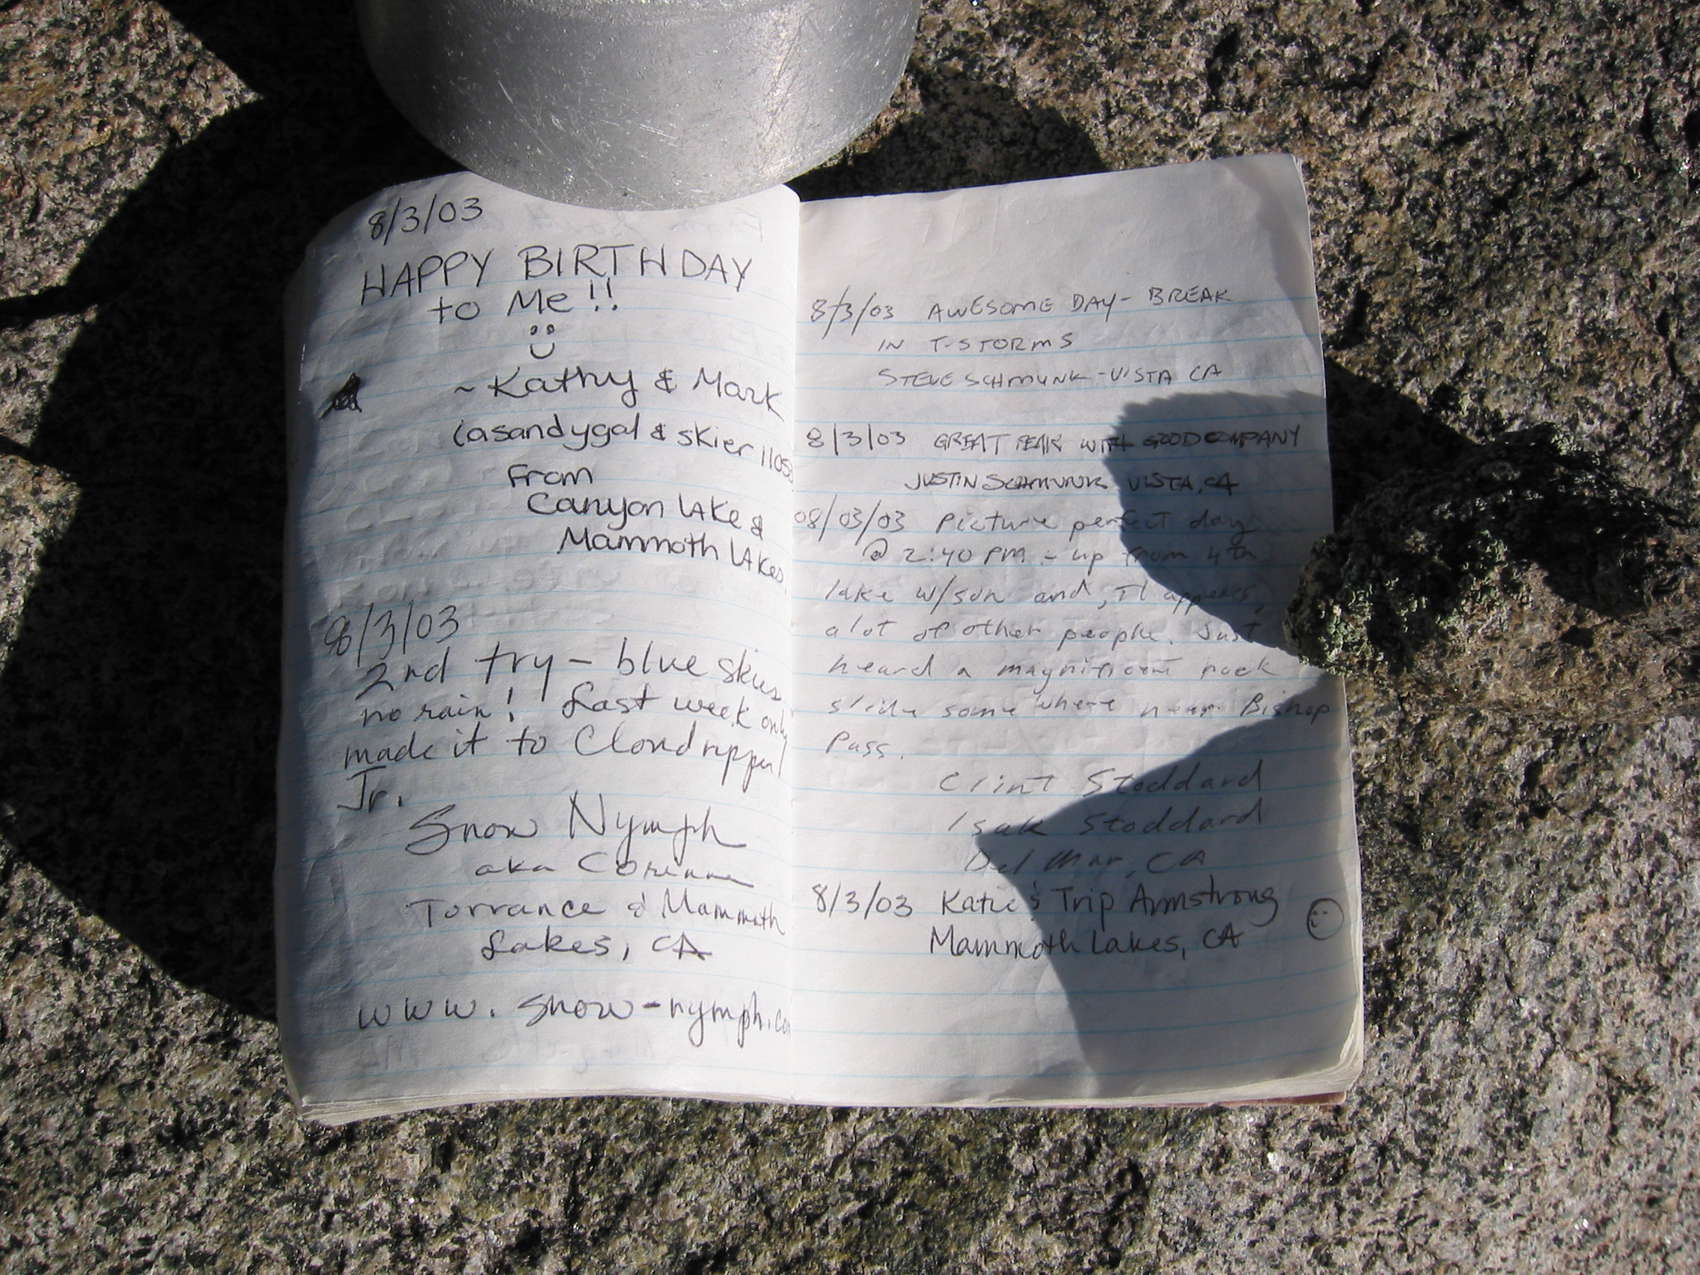 8/3/03
HAPPY BIRTHDAY
to Me!!
~ Kathy & Mark
(asandygal & skier 1105
From
Canyon LAKe &
Mammoth LAkes,
8/3/03
2nd try - blue skies
no rain! Last week only
made it to Cloudripper
Jr.
Snow Nymph
aka Corinna
Torrance & Mammoth
Lakes, CA
www.snow-nymph.co
8/3/03 AWESOME DAY - BREAK
IN T-STORMS
STEVE SCHMUNK - VISTA CA
8/3/03 GREAT PEAK WITH GOOD COMPANY
JUSTIN SCHMUNK VISTA, CA
08/03/03 Picture perfect day
@ 2:40 PM - up from 4th
lake w/son and, it appears,
alot of other people. Just
heard a magnificent rock
slide some where near Bishop
Pass.
Clint Stoddard
Isak Stoddard
Del Mar, CA
8/3/03 Katie & Trip Armstrong
Mammoth Lakes, CA